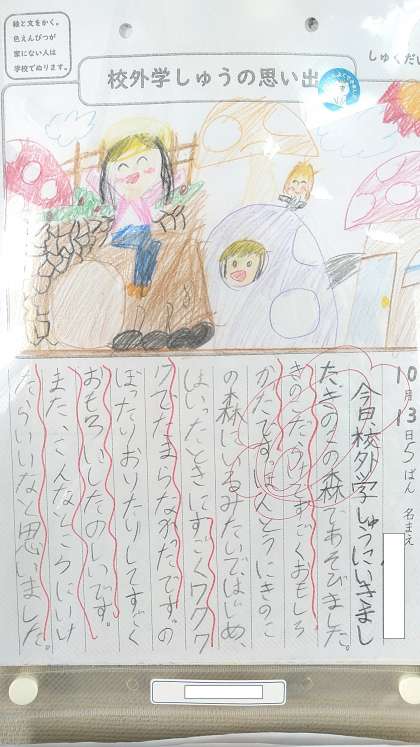 絵と文をかく。
色えんぴつが
家にない人は
学校でぬります。
校外学しゅうの思い出
しゅくだい
10月13日5ばん 名まえ
今日、校外学しゅうにいきまし
た。きのこの森であそびました。
きのこだらけですごくおもしろ
かたです。ほんとうにきのこ
の森にいるみたいではじめ、
はいったときにすごくワクワク
けてたまらなかたです。の
ぼったりおりたりしてすごく
おもろいしたのしいです。
また、こんなところにいけ
たらいいなと思いました。